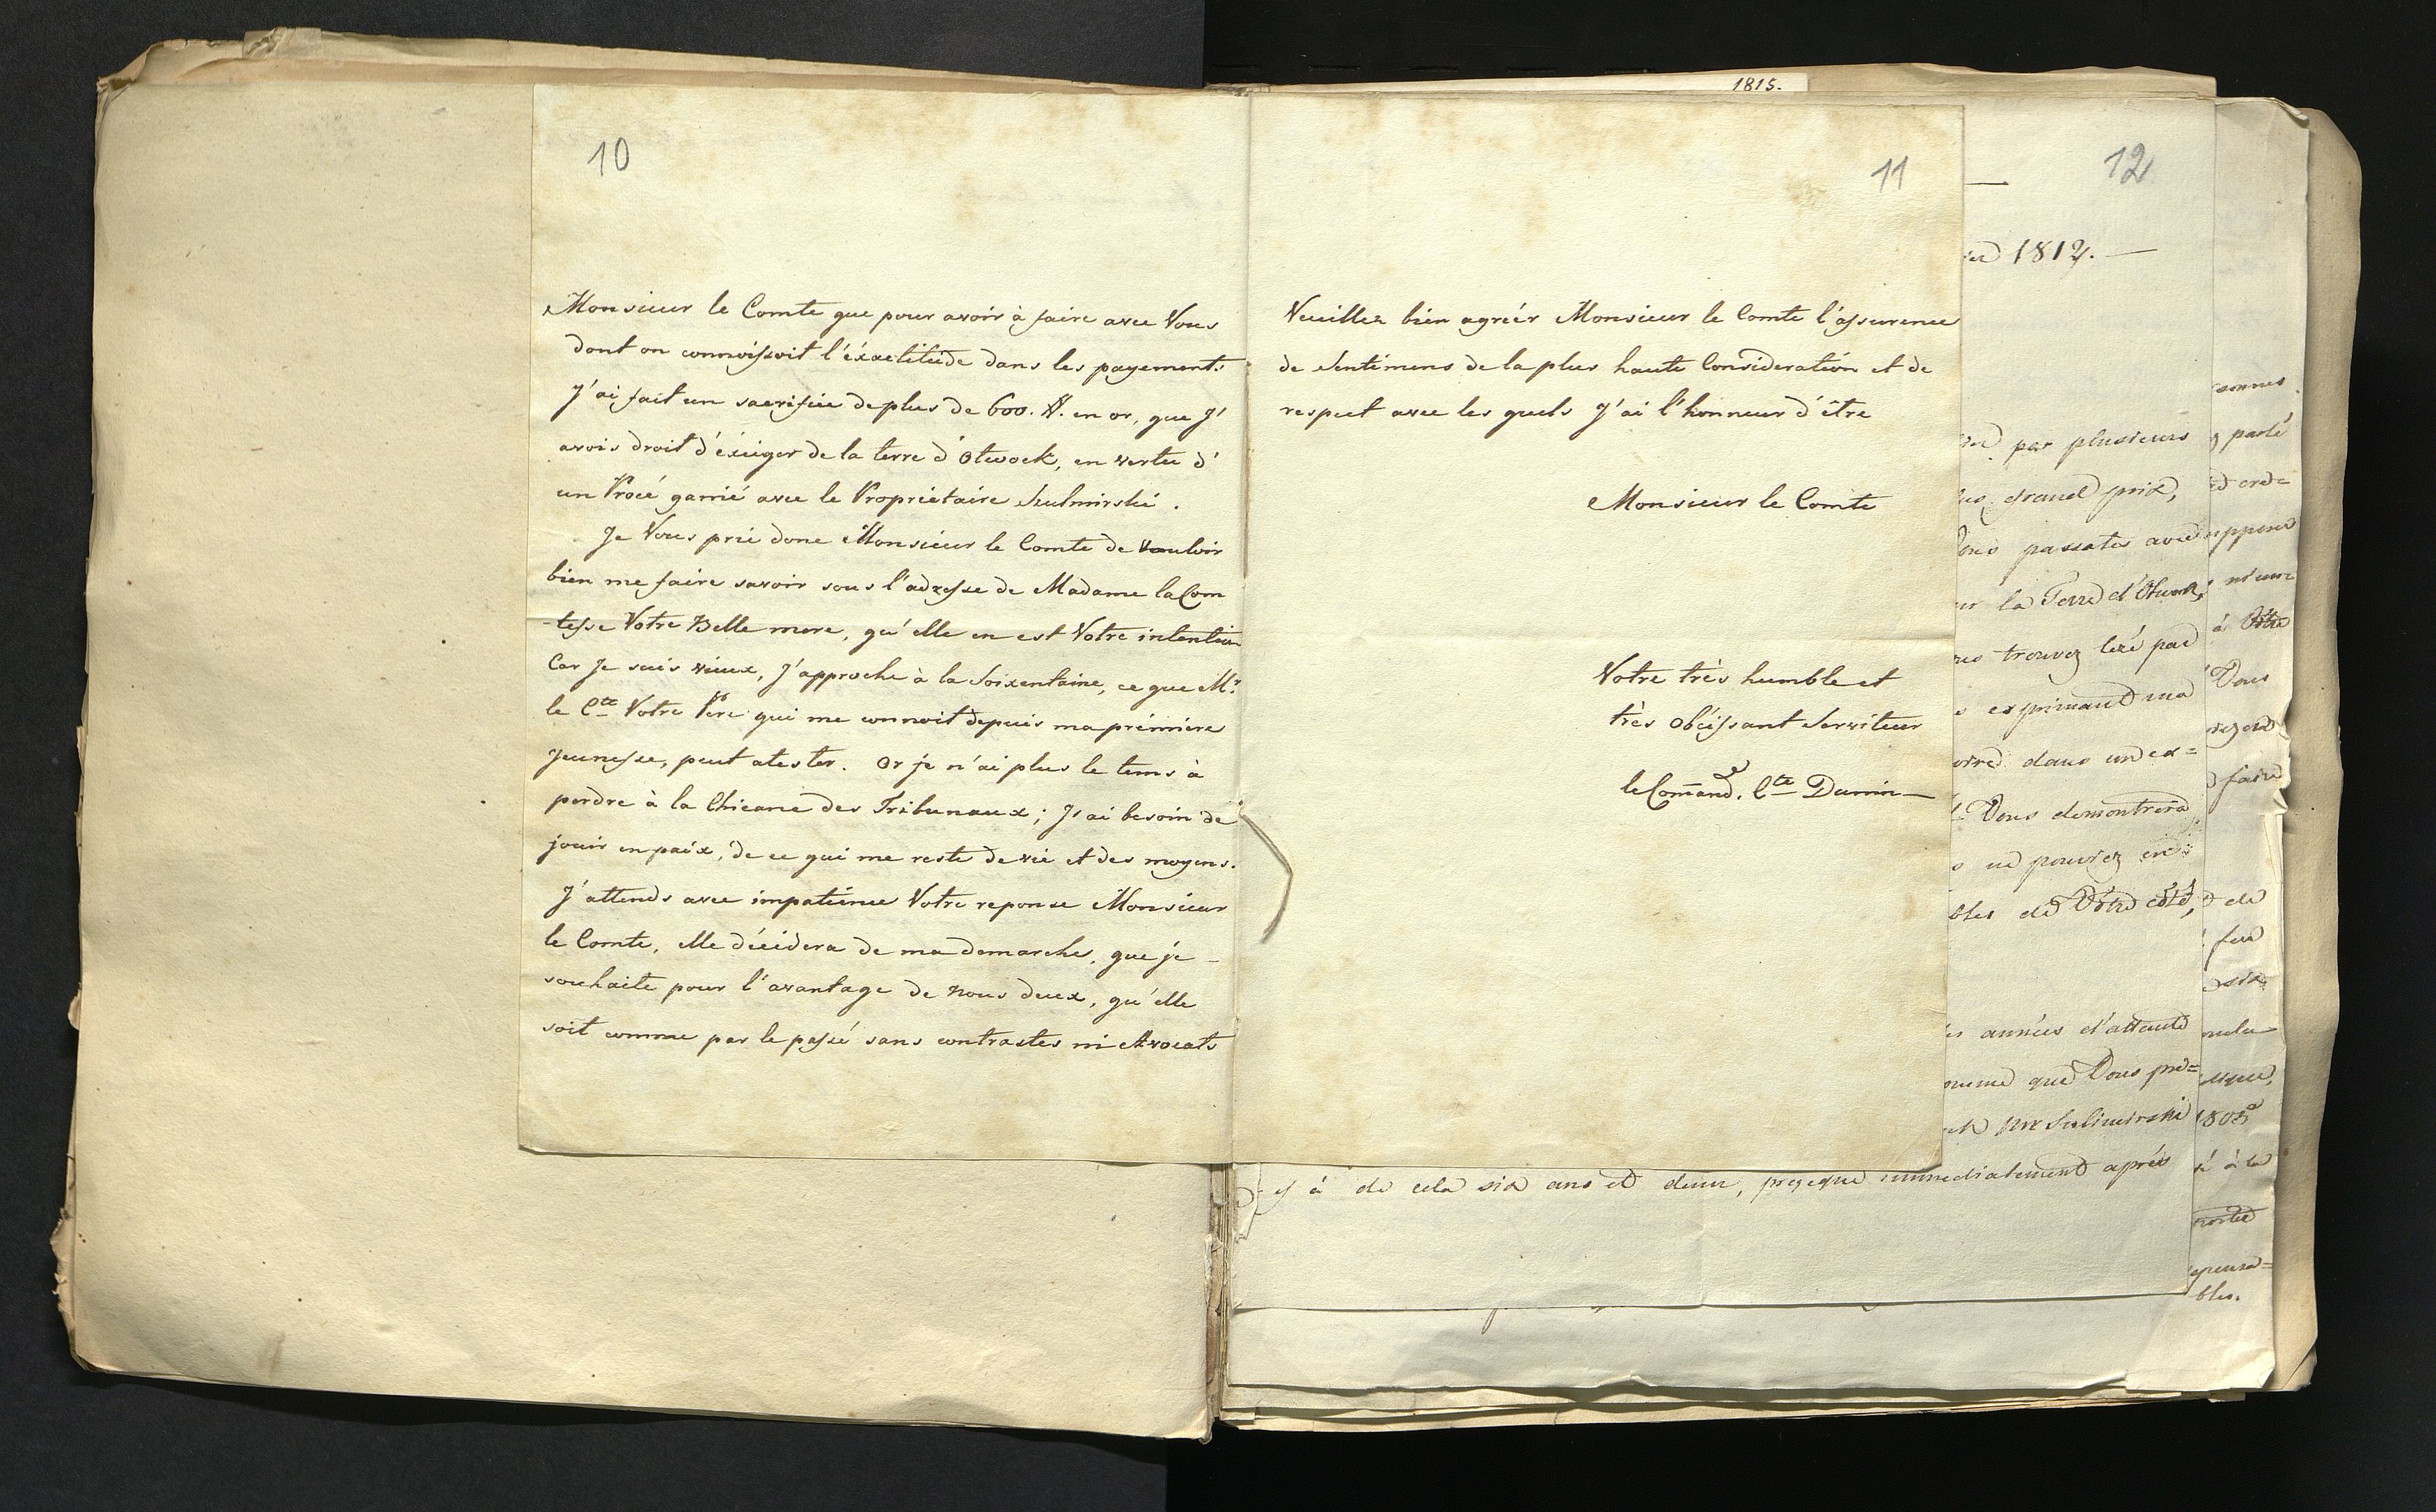 10
Monsieur le Comte que pour avoir à faire avec Vous
dont on connoissoit l'éxactitüde dans les payements
J'ai fait un sacrifice de plus de 600. #. en or, que J'
avois droit d'éxiiger de la terre d'Otwock, en vertu d'
un Procé garnié avec le Propriétaire Sulmirski.
Je Vous prie donc Monsieur le Comte de vouloir
bien me faire savoir sous l'adresse de Madame la Com
-tesse Votre Belle mere, qu'elle en est Votre intention
Car Je suis vieux, J'approche à la Soixentaine, ce que Mr.
le Cte Votre Pere qui me connoit depuis ma prémiere
Jeunesse, peut atester. Or je n'ai plus le tems à
perdre à la Chicane des Tribunaux; J'ai besoin de
jouir en paix, de ce qui me reste de vie et des moyens.
J'attends avec impatience Votre reponse Monsieur
le Comte, elle décidera de ma demarche, que je -
souhaite pour l'avantage de nous deux, qu'elle
soit comme par le passé sans contrastes ni Avocats
11
Veuillez bien agréer Monsieur le Comte l'assurence
de Sentimens de la plus haute Consideration et de
respect avec les quels J'ai l'honneur d'être
Monsieur le Comte
Votre très humble et
très obéissant Serviteur
le Comand. Cte Dunin
1815.
12
1812.
par plusieurs
grand prix,
passates avec
la Terre d'Otwock,
trouvez lézé par
exprimant ma
dans un ex=
Vous demontrera
ne pouviez en
de Vôtre côté,
années d'attente
que Vous pré=
Mr Sulimirski
y à de cela six ans et demi, presque immediatement après
parlé
à Vôtre
Vous
faire
de
1803
à la
bles.